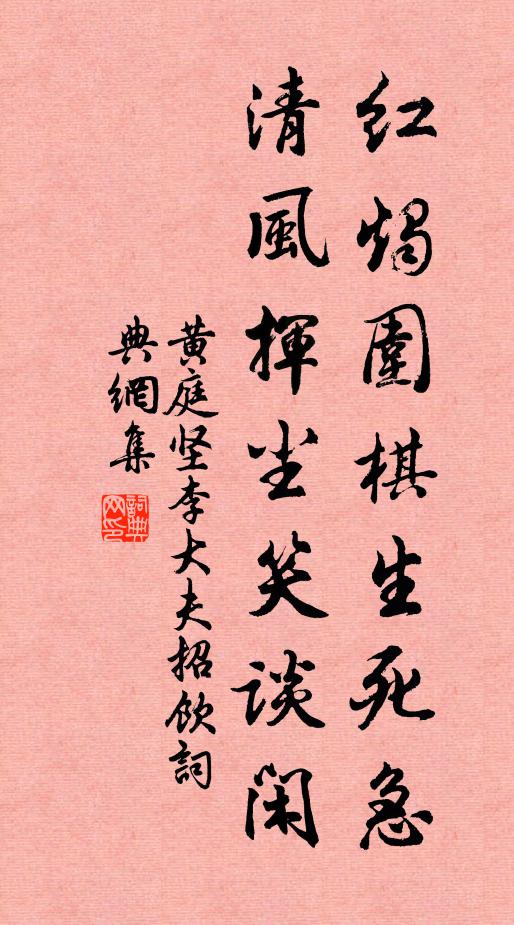 红燭圍棋生死急
清風揮尘笑談闲
黄庭坚李大夫招飲詞
典網集
詞典
网印